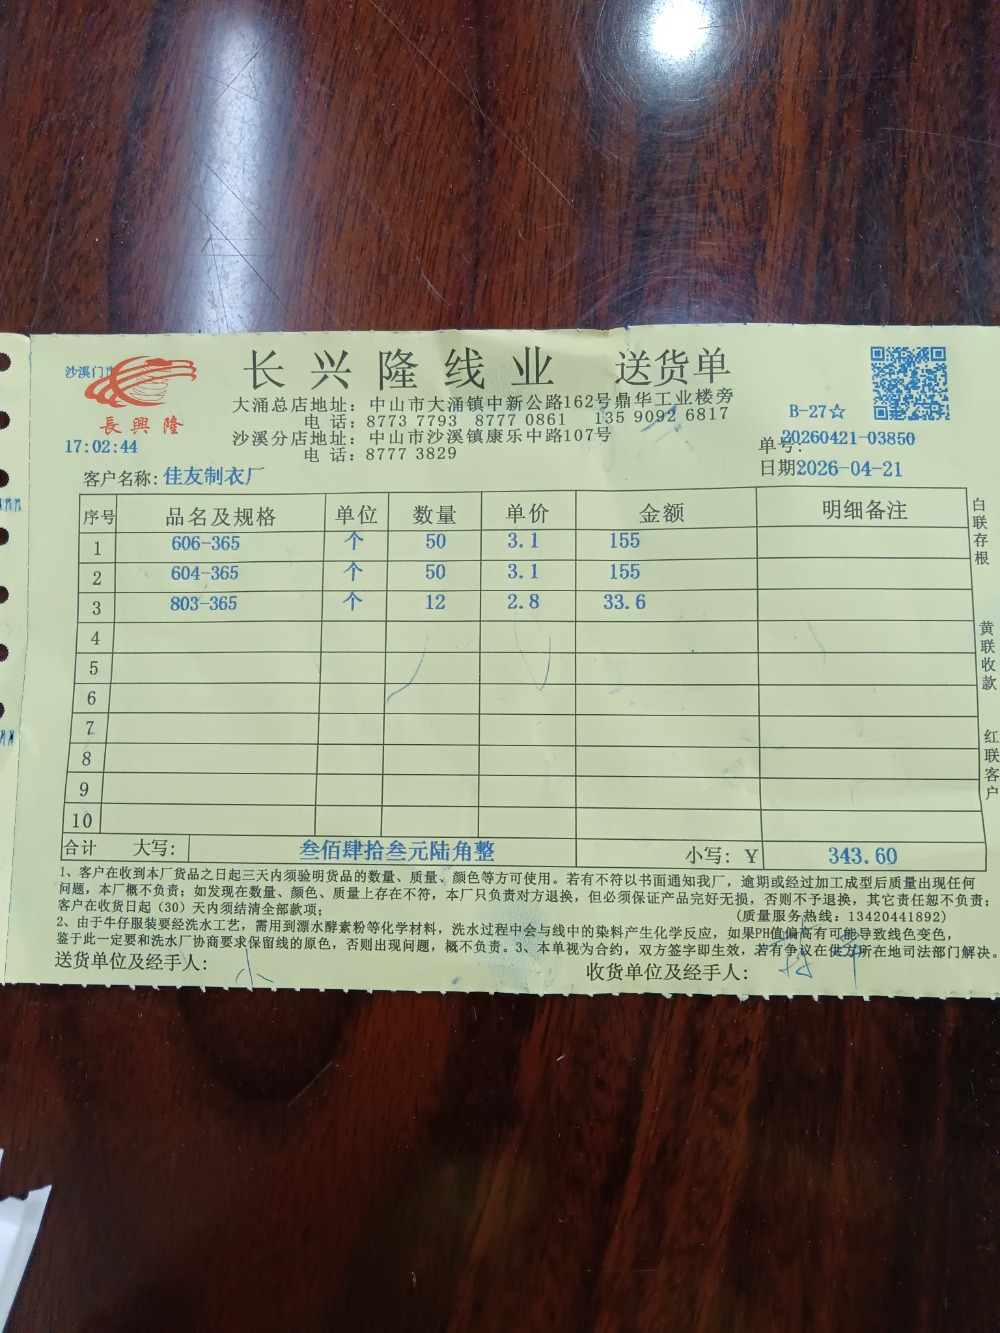 沙溪门市
長興隆
17:02:44
长兴隆线业 送货单
大涌总店地址：中山市大涌镇中新公路162号鼎华工业楼旁
电话：8773 7793 8777 0861 135 9092 6817
沙溪分店地址：中山市沙溪镇康乐中路107号
电话：8777 3829
B-27☆
单号：20260421-03850
日期2026-04-21
客户名称：佳友制衣厂
序号 品名及规格 单位 数量 单价 金额 明细备注
1 606-365 个 50 3.1 155
2 604-365 个 50 3.1 155
3 803-365 个 12 2.8 33.6
4
5
6
7
8
9
10
合计 大写： 叁佰肆拾叁元陆角整 小写：Y 343.60
白联存根
黄联收款
红联客户
1、客户在收到本厂货品之日起三天内须验明货品的数量、质量、颜色等方可使用。若有不符以书面通知我厂，逾期或经过加工成型后质量出现任何
问题，本厂概不负责；如发现在数量、颜色、质量上存在不符，本厂只负责对方退换，但必须保证产品完好无损，否则不予退换，其它责任恕不负责；
客户在收货日起（30）天内须结清全部款项；
(质量服务热线：13420441892)
2、由于牛仔服装要经洗水工艺，需用到漂水酵素粉等化学材料，洗水过程中会与线中的染料产生化学反应，如果PH值偏高有可能导致线色变色，
鉴于此一定要和洗水厂协商要求保留线的原色，否则出现问题，概不负责。3、本单视为合约，双方签字即生效，若有争议在供方所在地司法部门解决。
送货单位及经手人： 小
收货单位及经手人：